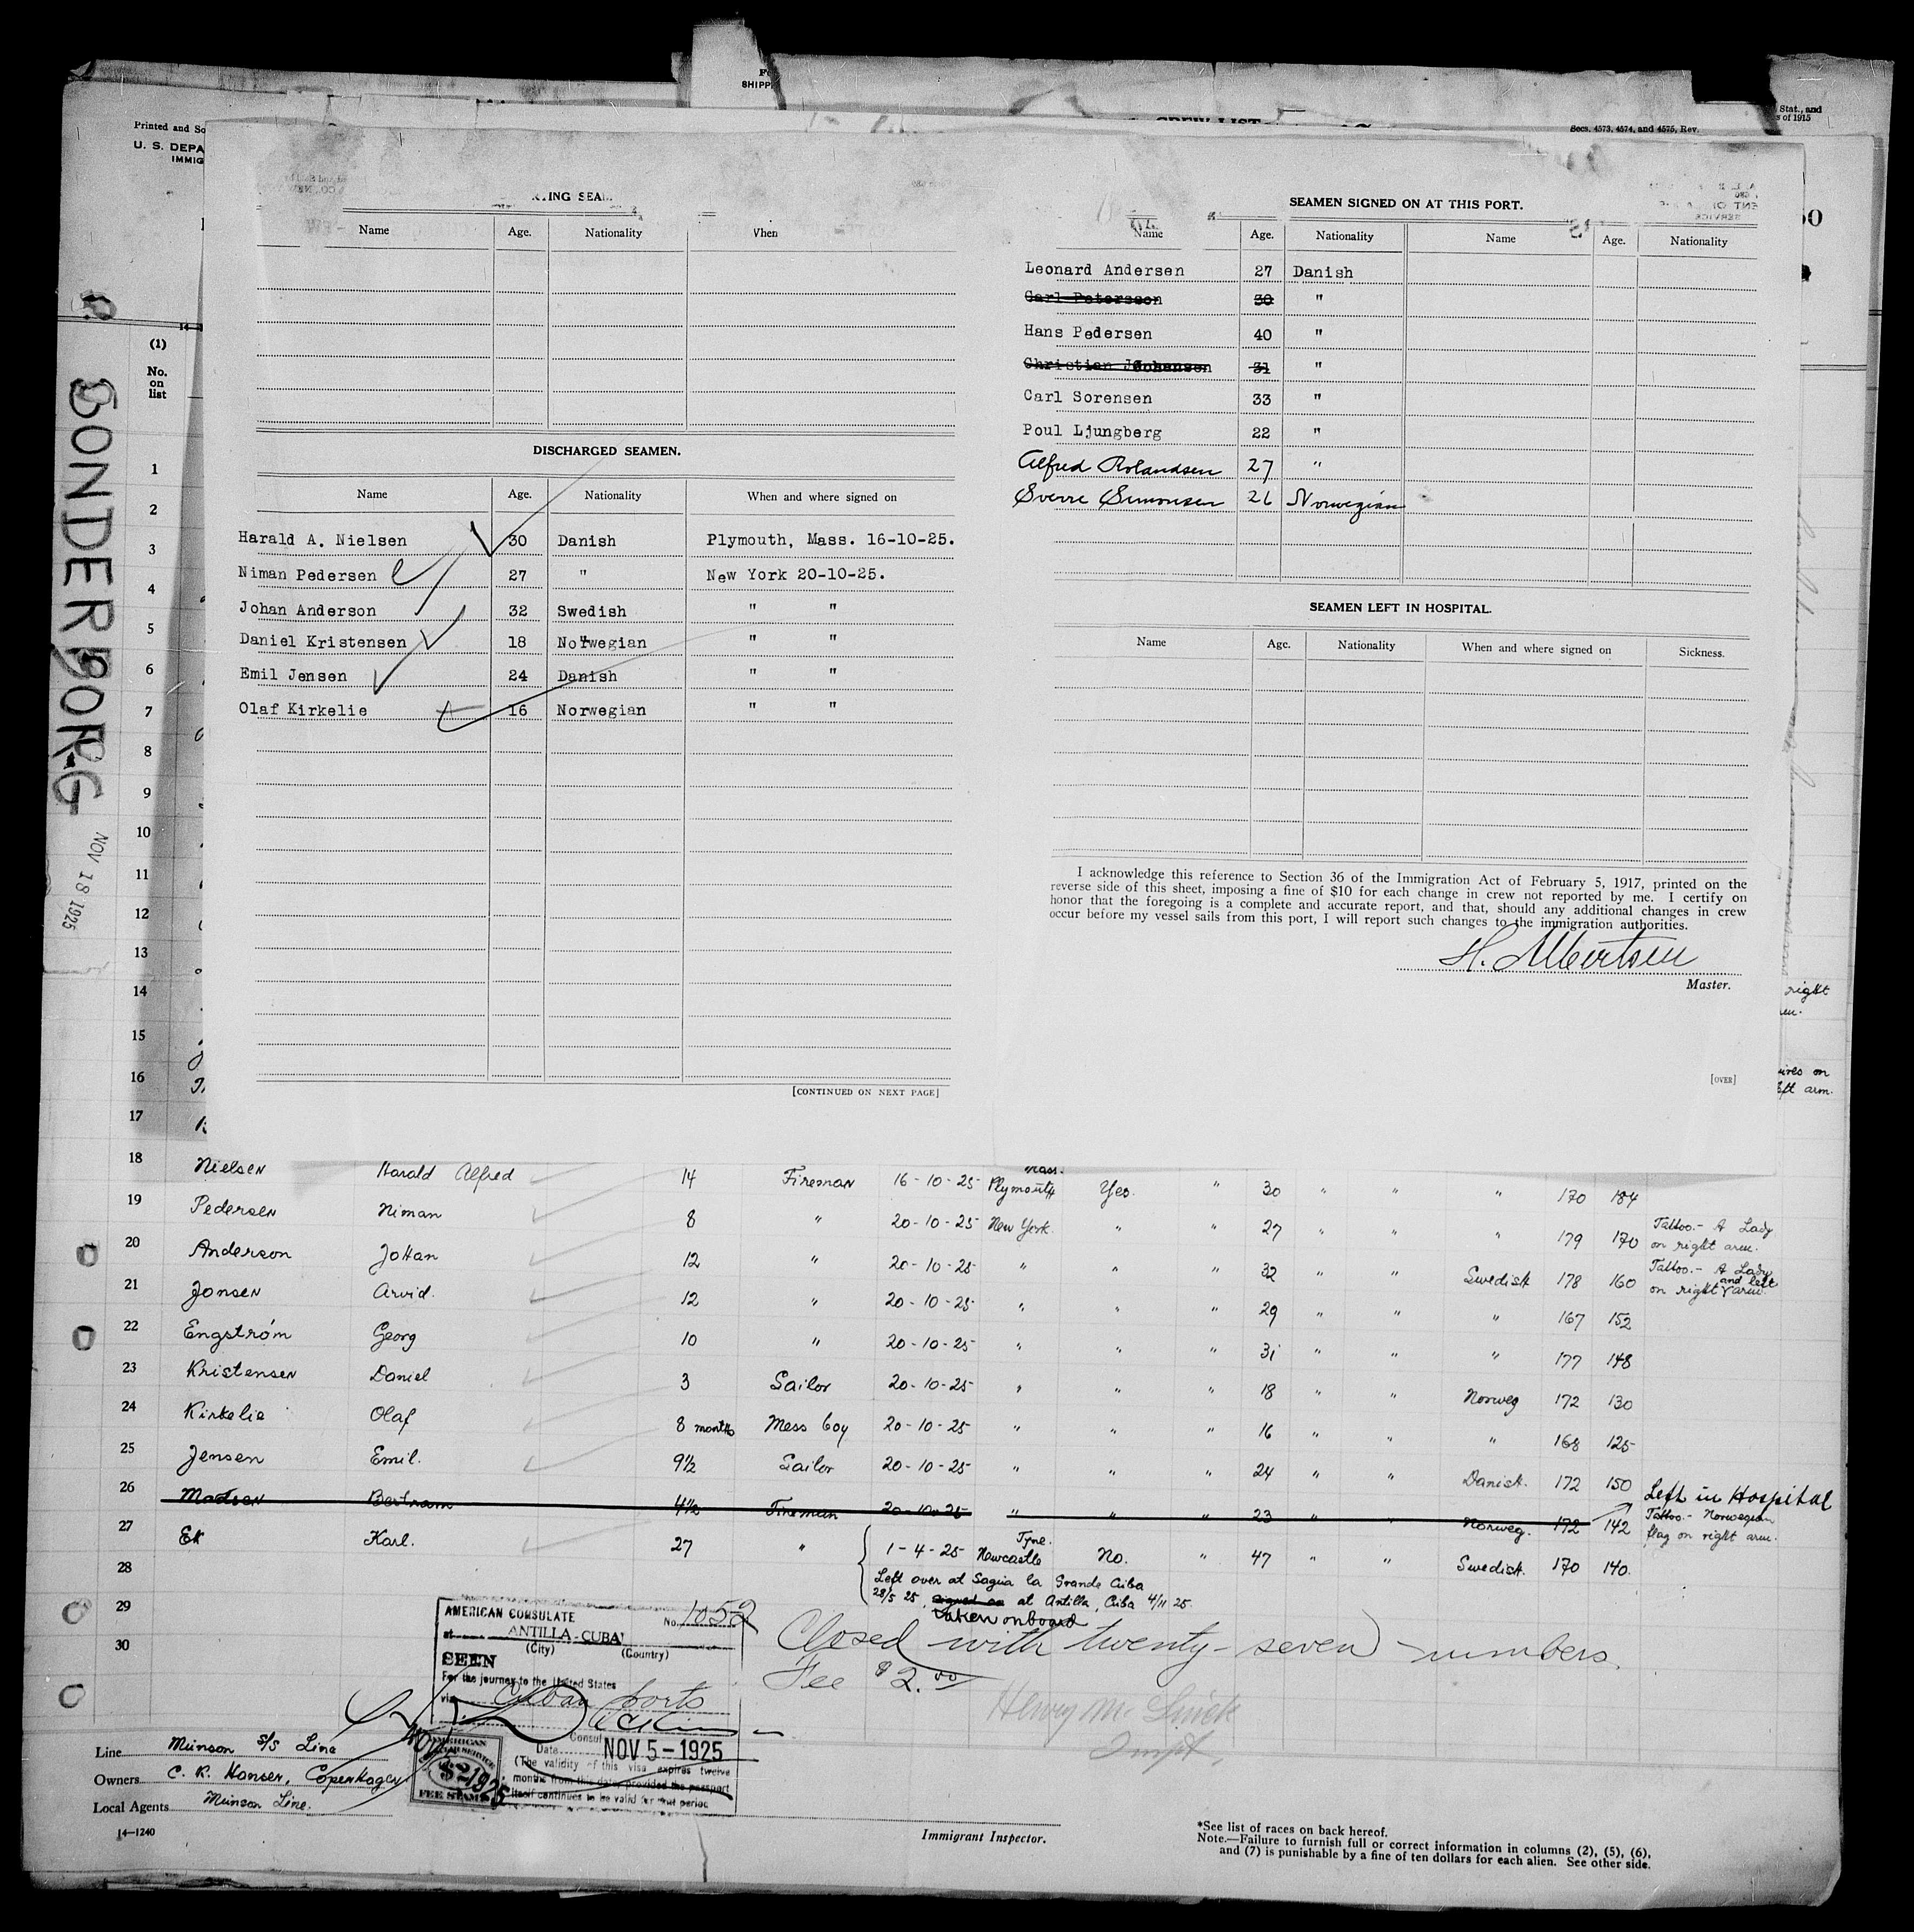 SHIPP
Stat., and
s of 1915
Secs. 4573, 4574, and 4575, Rev.
Printed and So
U. S. DEPA
IMMIG
(1)
No.
on
list
SONDERBORG
NOV 18 1925
Name Age. Nationality When
DISCHARGED SEAMEN.
Name Age. Nationality When and where signed on
Harald A. Nielsen 30 Danish Plymouth, Mass. 16-10-25.
Niman Pedersen 27 " New York 20-10-25.
Johan Anderson 32 Swedish " "
Daniel Kristensen 18 Norwegian " "
Emil Jensen 24 Danish " "
Olaf Kirkelie 16 Norwegian " "
[CONTINUED ON NEXT PAGE]
SEAMEN SIGNED ON AT THIS PORT.
Name Age. Nationality Name Age. Nationality
Leonard Andersen 27 Danish
Carl Petersson 30 "
Hans Pedersen 40 "
Christian Johansen 31 "
Carl Sorensen 33 "
Poul Ljungberg 22 "
Alfred Rolandsen 27 "
Sverre Simonsen 26 Norwegian
SEAMEN LEFT IN HOSPITAL.
Name Age. Nationality When and where signed on Sickness.
I acknowledge this reference to Section 36 of the Immigration Act of February 5, 1917, printed on the
reverse side of this sheet, imposing a fine of $10 for each change in crew not reported by me. I certify on
honor that the foregoing is a complete and accurate report, and that, should any additional changes in crew
occur before my vessel sails from this port, I will report such changes to the immigration authorities.
H. Albertsen
Master.
[OVER]
1
2
3
4
5
6
7
8
9
10
11
12
13
14 right
15
16
left arm.
17
18 Nielsen Harald Alfred 14 Fireman 16-10-25 Plymouth Mass. Yes. " 30 " " " 170 184
19 Pedersen Niman 8 " 20-10-25 New York. " " 27 " " " 179 170 Tattoo.- A Lady
on right arm.
20 Anderson Johan 12 " 20-10-25 " " " 32 " " Swedish 178 160 Tattoo.- A Lady
on right and left arm.
21 Jonsen Arvid. 12 " 20-10-25 " " " 29 " " " 167 152
22 Engström Georg 10 " 20-10-25 " " " 31 " " " 177 148
23 Kristensen Daniel 3 Sailor 20-10-25 " " " 18 " " Norweg 172 130
24 Kirkelie Olaf 8 months Mess boy 20-10-25 " " " 16 " " " 168 125
25 Jensen Emil. 9½ Sailor 20-10-25 " " " 24 " " Danish. 172 150
Left in Hospital
26 Madsen Bertram 4½ Fireman 20-10-25 " " " 23 " " Norweg. 172 142 Tattoo.- Norwegian
flag on right arm.
27 Ek Karl. 27 " 1-4-25 Tyne. Newcastle No. " 47 " " Swedish. 170 140.
28 Left over at Sagua la Grande Cuba
28/5 25, signed on at Antilla, Cuba 4/11 25.
taken onboard
29
30
Closed with twenty-seven numbers.
Fee $2.00
AMERICAN CONSULATE
No. 1052
at ANTILLA-CUBA
(City) (Country)
SEEN
For the journey to the United States
via Cuban ports
Consul
Date NOV 5 - 1925
(The validity of this visa expires twelve
months from this date, provided the passport
itself continues to be valid for that period
AMERICAN
$2
FEE STAMP
Line Munson S/S Line
Owners C. K. Hansen, Copenhagen
Local Agents Munson Line.
14—1240
Immigrant Inspector.
*See list of races on back hereof.
Note.—Failure to furnish full or correct information in columns (2), (5), (6),
and (7) is punishable by a fine of ten dollars for each alien. See other side.